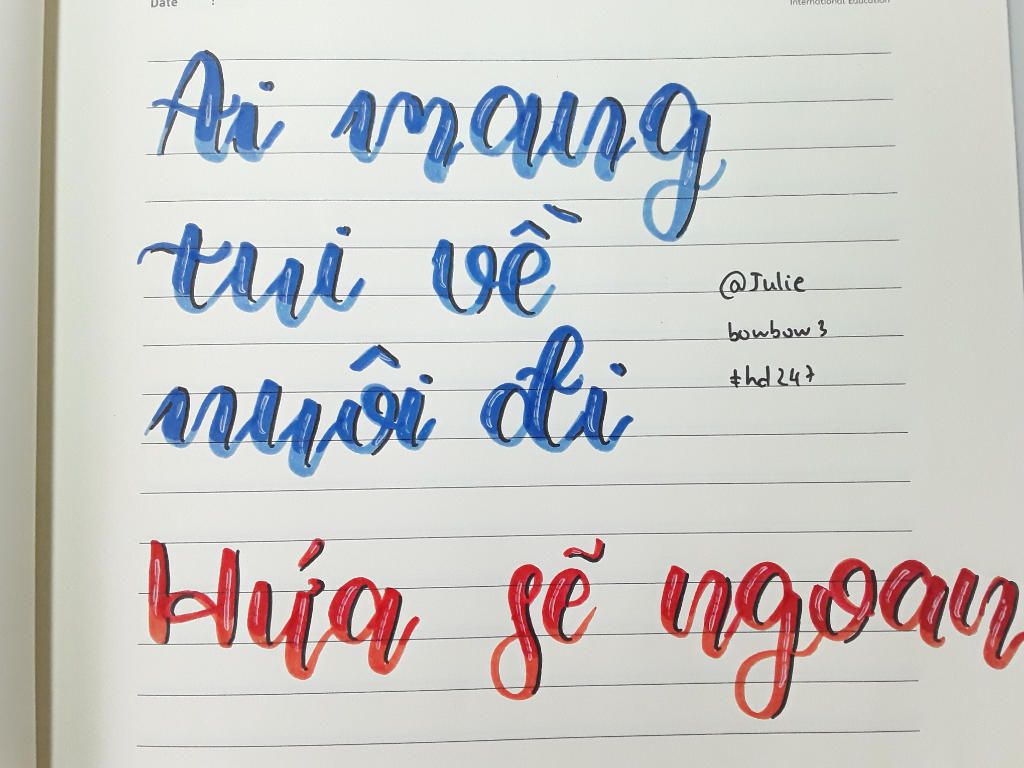 Date :
International Education
Ai mang
tui về
nuôi đi
@Julie
bowbow3
#hd247
Hứa sẽ ngoan